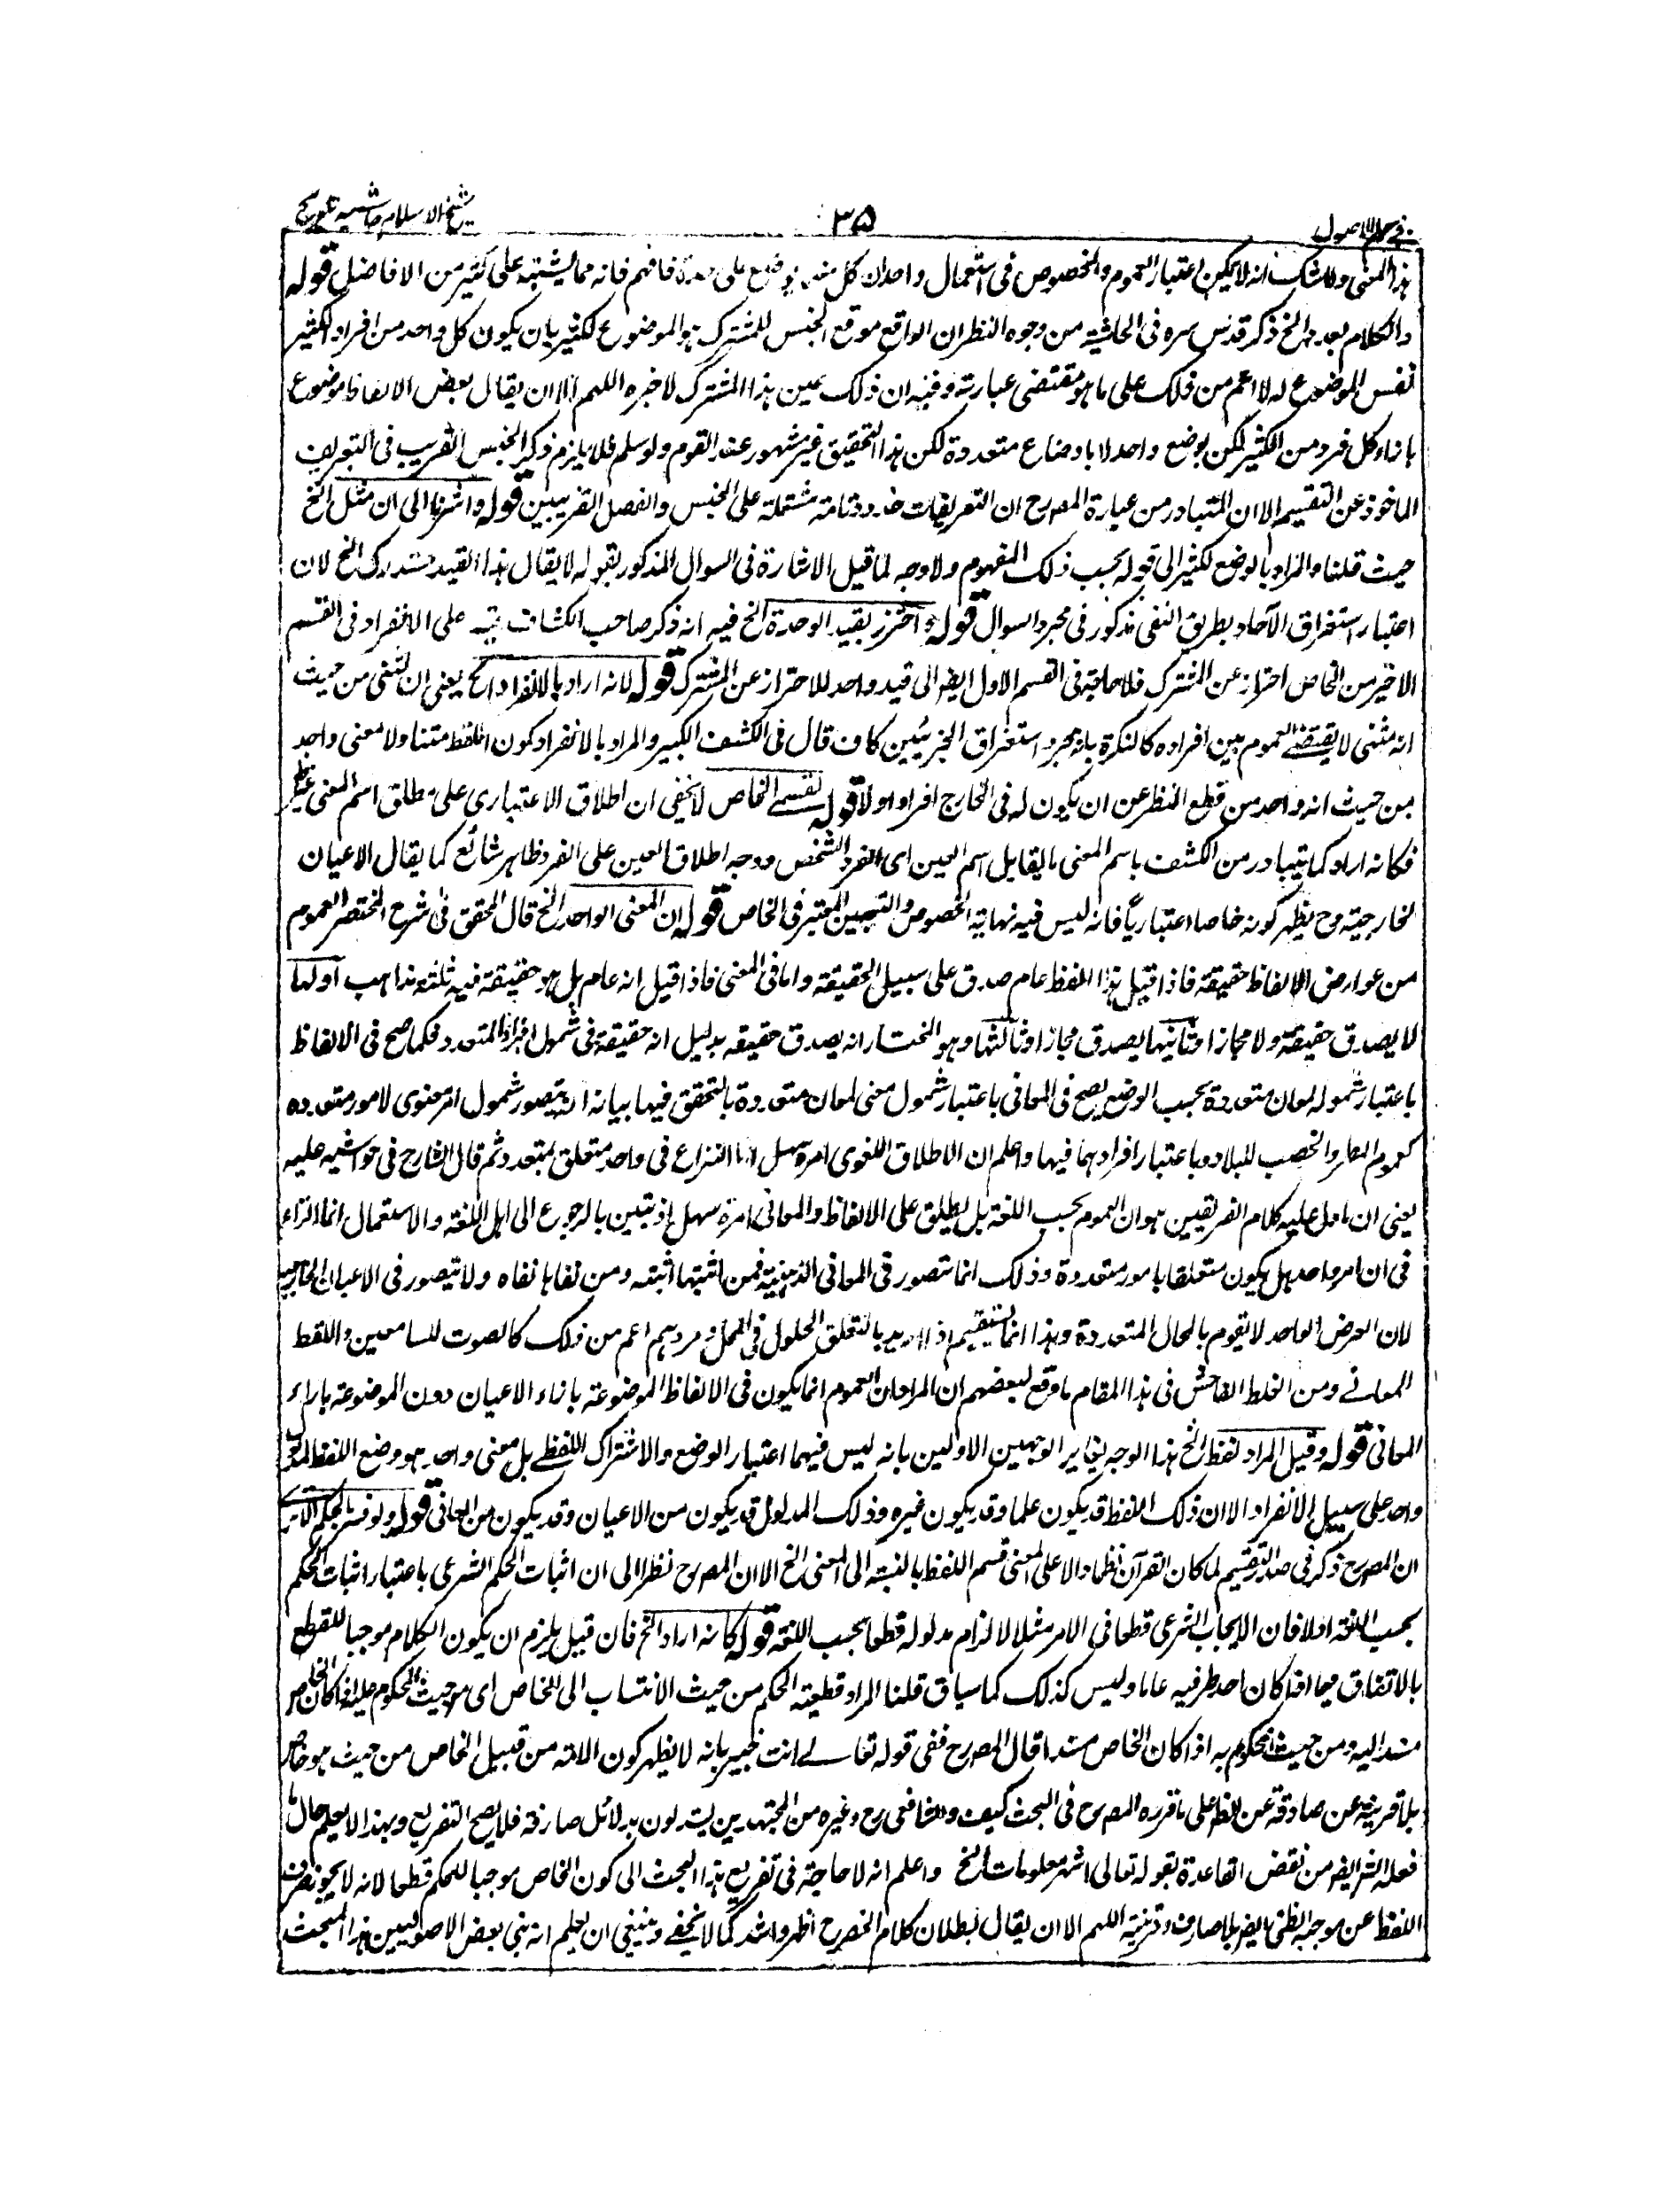 في علم الاصول
٣٥
شيخ الاسلام حاشيه تلويح
هذا المعنى ولا شك انه لا يمكن اعتبار العموم والخصوص فى استعمال واحد ان كل منهما فافهم فانه مما يشتبه على كثير من الافاضل قوله
والكلام بعد الخ ذكر قدس سره فى الحاشية من وجوه النظر ان الواقع موقع الجنس للمشترك هو الموضوع لكثير بان يكون كل واحد من افراد الكثير
نفس الموضوع له لا اعم من ذلك على ما هو مقتضى عبارته وفيه ان ذلك عين هذا المشترك لا خبره اللهم الا ان يقال بعض الالفاظ موضوع
بازاء كل فرد من الكثير لكن بوضع واحد لا باوضاع متعددة لكن هذا التحقيق غير مشهور عند القوم ولو سلم فلا يلزم ذكر الجنس القريب فى التعريف
الماخوذ عن التقسيم الا ان المتبادر من عبارة المصرح ان التعريفات حدود تامة مشتملة على الجنس والفصل القريبين قوله واشرنا الى ان مثل الخ
حيث قلنا والمراد بالوضع لكثير الى قوله بحسب ذلك المفهوم ولا وجه لما قيل الاشارة فى السوال المذكور بقوله لا يقال هذا القيد مستدرك الخ لان
اعتبار استغراق الآحاد بطريق النفى مذكور فى مجرد السوال قوله واحترز بقيد الوحدة الخ فيه انه ذكر صاحب الكشاف على الانفراد فى القسم
الاخير من الخاص احتراز عن المشترك فلا حاجة فى القسم الاول ايضا الى قيد واحد للاحتراز عن المشترك قوله لانه اراد بالانفراد الخ يعنى ان المثنى من حيث
انه مثنى لا يقتضى العموم بين افراده كالنكرة بانه مجرد استغراق الجزئيين كاف قال فى الكشف الكبير والمراد بالانفراد كون اللفظ متناولا لمعنى واحد
من حيث انه واحد مع قطع النظر عن ان يكون له فى الخارج افراد اولا قوله لقسمى الخاص لا يخفى ان اطلاق الاعتبارى على مطلق اسم المعنى غير ظاهر
فكانه اراد كما يتبادر من الكشف باسم المعنى ما يقابل اسم العين اى الفرد الشخص ووجه اطلاق العين على الفرد ظاهر شائع كما يقال الاعيان
الخارجية وح يظهر كونه خاصا اعتباريا فانه ليس فيه نهاية الخصوص والتعيين المعتبر فى الخاص قوله ان المعنى الواحد الخ قال المحقق فى شرح المختصر العموم
من عوارض الالفاظ حقيقة فاذا قيل هذا اللفظ عام صدق على سبيل الحقيقة واما فى المعنى فاذا قيل انه عام بل هو حقيقة فيه ثلثة مذاهب اولها
لا يصدق حقيقة ولا مجازا وثانيها يصدق مجازا وثالثها وهو المختار انه يصدق حقيقة بدليل انه حقيقة فى شمول امر المتعدد فكما صح فى الالفاظ
باعتبار شموله لمعان متعددة بحسب الوضع يصح فى المعانى باعتبار شمول معنى لمعان متعددة بالتحقق فيها بيانه انه يتصور شمول امر معنوى لامور متعدده
كعموم المطر والخصب للبلاد وباعتبار افرادهما فيها واعلم ان الاطلاق اللغوى امره سهل انما النزاع فى واحد متعلق بمتعدد ثم قال الشارح فى حواشيه عليه
يعنى ان ما دل عليه كلام الفريقين هو ان العموم بحسب اللغة بل يطلق على الالفاظ والمعانى امره سهل اذ يتبين بالرجوع الى اهل اللغة والاستعمال انما النزاع
فى ان امر واحد بل يكون متعلقا بامور متعددة وذلك انما تتصور فى المعانى الذهنية فمن اثبتها اثبته ومن نفاها نفاه ولا يتصور فى الاعيان الخارجية
لان العرض الواحد لا يقوم بالمحال المتعددة وهذا انما يستقيم اذا اريد بالتعلق الحلول فى المحل ومرادهم اعم من ذلك كالصوت للسامعين واللفظ
للمعانى ومن الغلط الفاحش فى هذا المقام ما وقع لبعضهم ان المراد ان العموم انما يكون فى الالفاظ الموضوعة بازاء الاعيان دون الموضوعة بازاء
المعانى قوله وقيل المراد لفظ الخ هذا الوجه يغاير الوجهين الاولين بانه ليس فيهما اعتبار الوضع والاشتراك اللفظى بل معنى واحد هو وضع اللفظ لمدلول
واحد على سبيل الانفراد الا ان ذلك اللفظ قد يكون علما وقد يكون غيره وذلك المدلول قد يكون من الاعيان وقد يكون من المعانى قوله ولو فسر الحكم الخ
ان المصرح ذكر فى صدر التقسيم لما كان القرآن نظما دالا على المعنى قسم اللفظ بالنسبة الى المعنى الخ الا ان المصرح نظر الى ان اثبات الحكم الشرعى باعتبار اثبات الحكم
بحسب اللغة اولا فان الايجاب الشرعى قطعا فى الامر مثلا لالزام مدلوله قطعا بحسب اللغة قوله كانه اراد الخ فان قيل يلزم ان يكون الكلام موجبا للقطع
بالاتفاق فيما اذا كان احد طرفيه عاما وليس كذلك كما سياق قلنا المراد قطعية الحكم من حيث الانتساب الى الخاص اى من حيث المحكوم عليه اذا كان الخاص
مسند اليه ومن حيث المحكوم به اذا كان الخاص مسندا قال المصرح ففى قوله تعالى انت خبير بانه لا يظهر كون الامة من قبيل الخاص من حيث هو خاص
بلا قرينة عن صادقة عن على ما قرره المصرح فى البحث كيف والشافعى رح وغيره من المجتهدين يستدلون بدلائل صارفة فلا يصح التفريع وبهذا الا يعلم حال ما
فعله الشريف من نقض القاعدة بقوله تعالى اشهر معلومات الخ واعلم انه لا حاجة فى تفريع هذا البحث الى كون الخاص موجبا للحكم قطعا لانه لا يجوز صرف
اللفظ عن موجبه الظنى ايضا بلا صارف وقرينة اللهم الا ان يقال بطلان كلام الخصم ح اظهر واشد كما لا يخفى وينبغى ان يعلم انه بنى بعض الاصوليين هذا المبحث